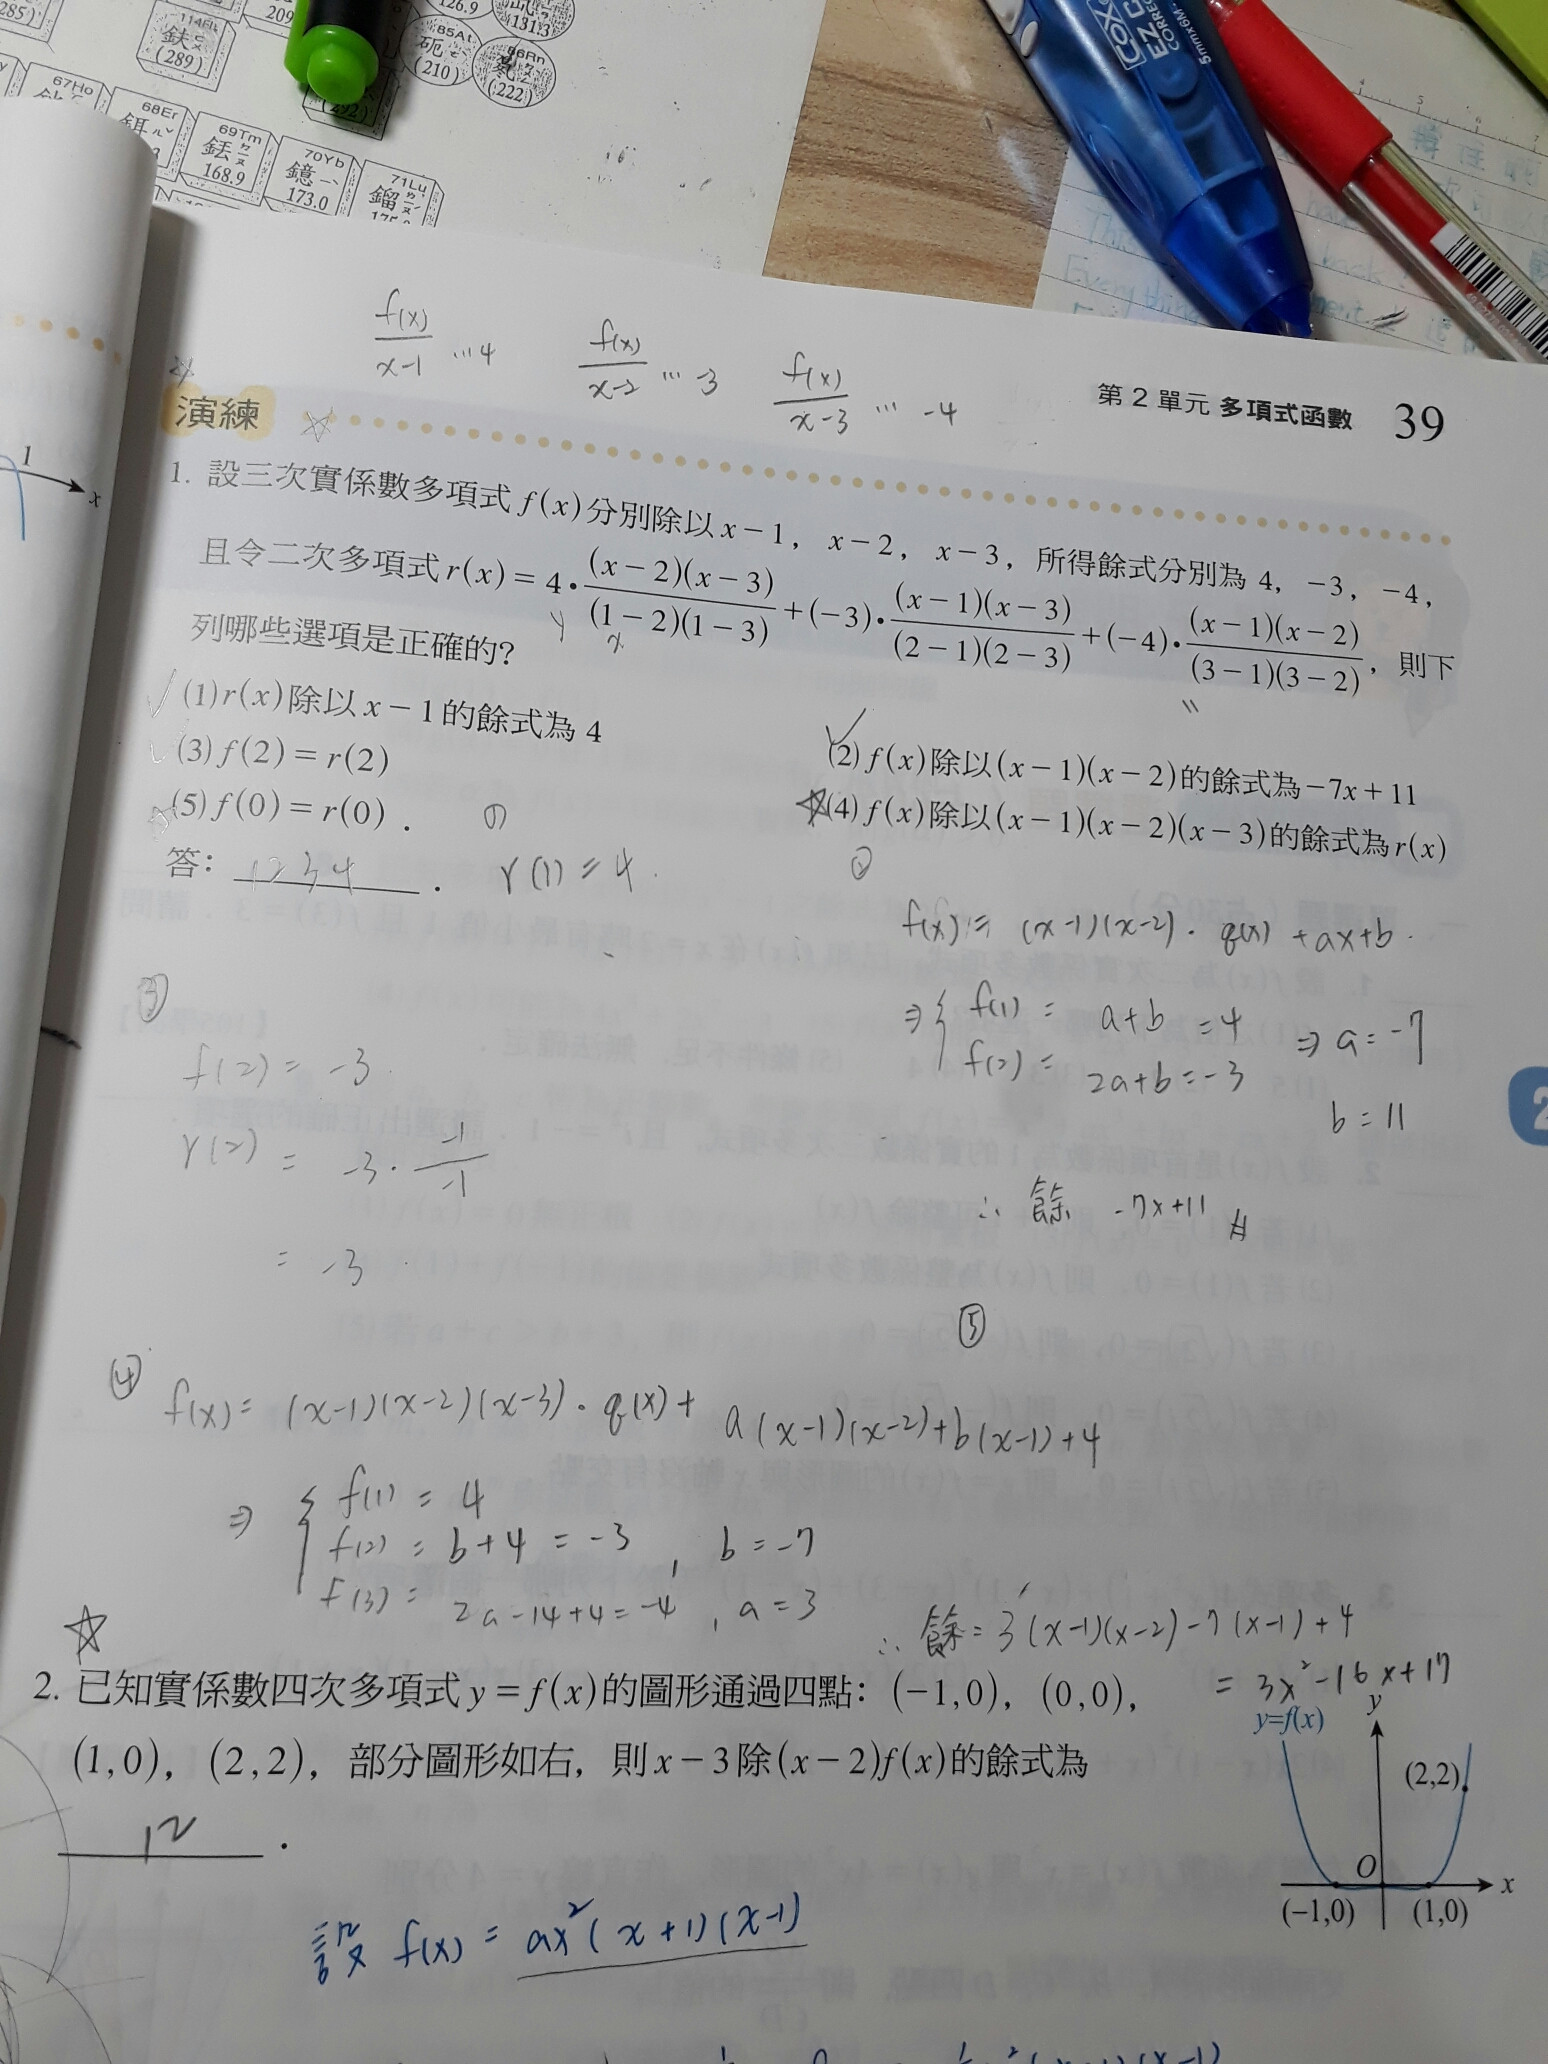 285)
209
126.9
(131.3
114Fl
鈇
(289)
85At
砈
(210)
86Rn
氡
(222)
(292)
67Ho
68Er
鉺
69Tm
銩
168.9
70Yb
鐿
173.0
71Lu
鎦
COX
EZ
CORRE
5mmx6M
f(x)/(x-1) …4
f(x)/(x-2) … -3
f(x)/(x-3) … -4
第2單元 多項式函數 39
演練
1. 設三次實係數多項式f(x)分別除以x-1，x-2，x-3，所得餘式分別為4，-3，-4，
且令二次多項式r(x)=4·(x-2)(x-3)/(1-2)(1-3)+(-3)·(x-1)(x-3)/(2-1)(2-3)+(-4)·(x-1)(x-2)/(3-1)(3-2)，則下
列哪些選項是正確的？
(1)r(x)除以x-1的餘式為4
(2)f(x)除以(x-1)(x-2)的餘式為-7x+11
(3)f(2)=r(2)
(4)f(x)除以(x-1)(x-2)(x-3)的餘式為r(x)
(5)f(0)=r(0)．
答：1234．
(1)
r(1)=4.
②
f(x)=(x-1)(x-2)·q(x)+ax+b.
⇒{f(1)= a+b=4 ⇒a=-7
f(2)= 2a+b=-3
b=11
∴餘 -7x+11
③
f(2)=-3
r(2)= -3·-1/-1
= -3
⑤
④
f(x)=(x-1)(x-2)(x-3)·q(x)+a(x-1)(x-2)+b(x-1)+4
⇒{f(1)=4
f(2)=b+4=-3, b=-7
f(3)=2a-14+4=-4, a=3
∴餘=3(x-1)(x-2)-7(x-1)+4
=3x²-16x+17
2. 已知實係數四次多項式y=f(x)的圖形通過四點：(-1,0)，(0,0)，
(1,0)，(2,2)，部分圖形如右，則x-3除(x-2)f(x)的餘式為
12．
y=f(x)
y
(2,2)
O
x
(-1,0)
(1,0)
設 f(x)=ax²(x+1)(x-1)
1
x
2